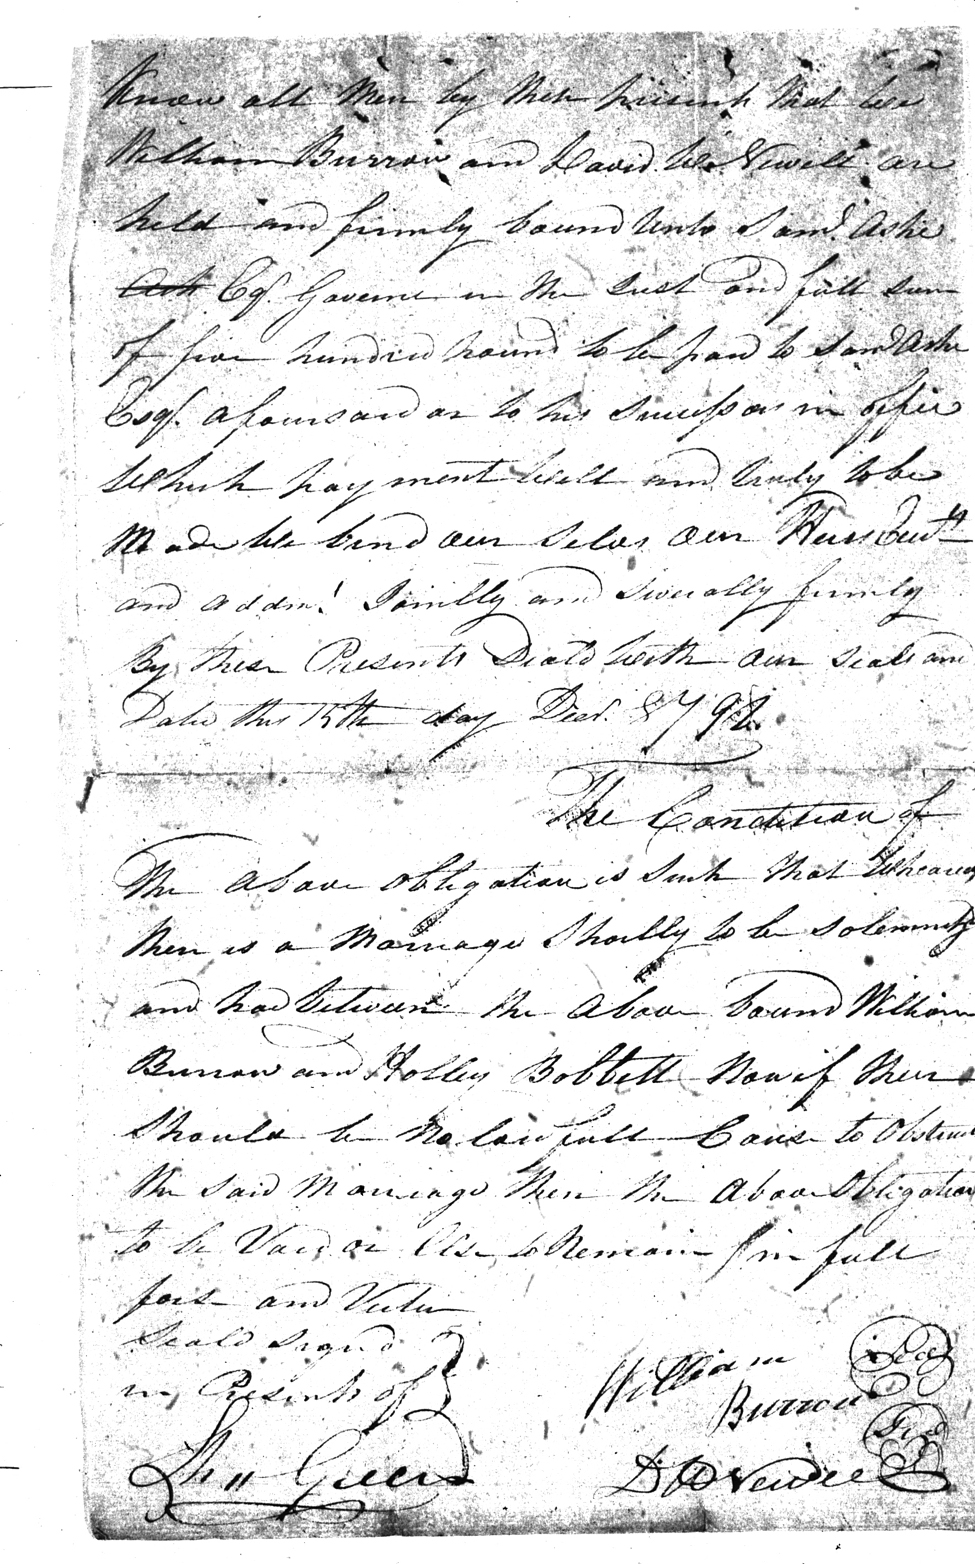 Know all Men by these presents that we
William Burrow and David W. Newell are
held and firmly bound unto Saml. Ashe
Esq. Governe in the Just and full sum
of five hundred pound to be paid to Saml Ashe
Esqr. aforesaid or to his Successors in office
Which payment well and truly to be
Made We bind our selves our Heirs
and addm. Joinlly and Severally firmly
By these Presents Seald with our seals and
Date this 15th day Decr. 179
The Condition of
The Above obligation is such that Wheareas
there is a Marriage Shortly to be solemnity
and had between the Above bound William
Burrow and Holley Bobbett Now if their
Should be No lawfull Cause to Obstruct
the said Marriage then the Above Obligation
to be Void or Else to Remain in full
fors and Vertu
Seald signd
in Presents of
William Seal
Burrow
Seal
Tho Green
D W Newell